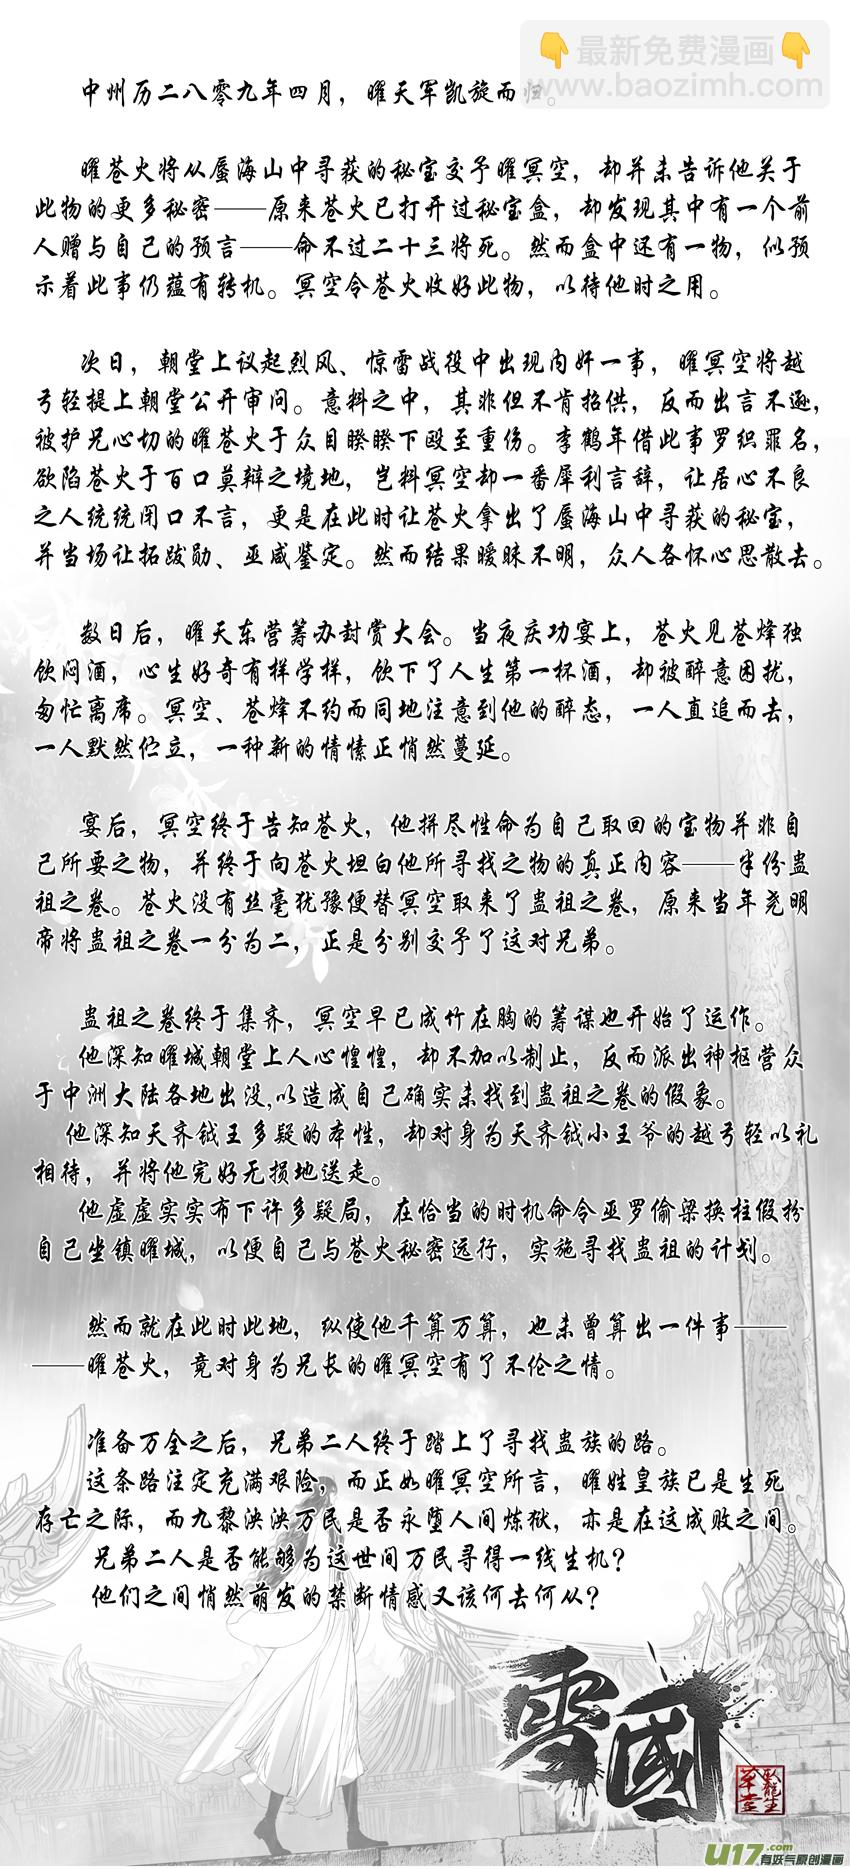 👇最新免费漫画👇
www.baozimh.com
中州历二八零九年四月，曜天军凯旋而归。
曜苍火将从蜃海山中寻获的秘宝交予曜冥空，却并未告诉他关于
此物的更多秘密——原来苍火已打开过秘宝盒，却发现其中有一个前
人赠与自己的预言——命不过二十三将死。然而盒中还有一物，似预
示着此事仍蕴有转机。冥空令苍火收好此物，以待他时之用。
次日，朝堂上议起烈风、惊雷战役中出现内奸一事，曜冥空将越
兮轻提上朝堂公开审问。意料之中，其非但不肯招供，反而出言不逊，
被护兄心切的曜苍火于众目睽睽下殴至重伤。李鹤年借此事罗织罪名，
欲陷苍火于百口莫辩之境地，岂料冥空却一番犀利言辞，让居心不良
之人统统闭口不言，更是在此时让苍火拿出了蜃海山中寻获的秘宝，
并当场让拓跋勋、亚咸鉴定。然而结果暧昧不明，众人各怀心思散去。
数日后，曜天东营筹办封赏大会。当夜庆功宴上，苍火见苍烽独
饮闷酒，心生好奇有样学样，饮下了人生第一杯酒，却被醉意困扰，
匆忙离席。冥空、苍烽不约而同地注意到他的醉态，一人直追而去，
一人默然伫立，一种新的情愫正悄然蔓延。
宴后，冥空终于告知苍火，他拼尽性命为自己取回的宝物并非自
己所要之物，并终于向苍火坦白他所寻找之物的真正内容——半份蛊
祖之卷。苍火没有丝毫犹豫便替冥空取来了蛊祖之卷，原来当年尧明
帝将蛊祖之卷一分为二，正是分别交予了这对兄弟。
蛊祖之卷终于集齐，冥空早已成竹在胸的筹谋也开始了运作。
他深知曜城朝堂上人心惶惶，却不加以制止，反而派出神枢营众
于中洲大陆各地出没,以造成自己确实未找到蛊祖之卷的假象。
他深知天齐钺王多疑的本性，却对身为天齐钺小王爷的越兮轻以礼
相待，并将他完好无损地送走。
他虚虚实实布下许多疑局，在恰当的时机命令亚罗偷梁换柱假扮
自己坐镇曜城，以便自己与苍火秘密远行，实施寻找蛊祖的计划。
然而就在此时此地，纵使他千算万算，也未曾算出一件事——
——曜苍火，竟对身为兄长的曜冥空有了不伦之情。
准备万全之后，兄弟二人终于踏上了寻找蛊族的路。
这条路注定充满艰险，而正如曜冥空所言，曜姓皇族已是生死
存亡之际，而九黎泱泱万民是否永堕人间炼狱，亦是在这成败之间。
兄弟二人是否能够为这世间万民寻得一线生机？
他们之间悄然萌发的禁断情感又该何去何从？
雪國
卧龍生
草堂
U17.com
有妖气原创漫画